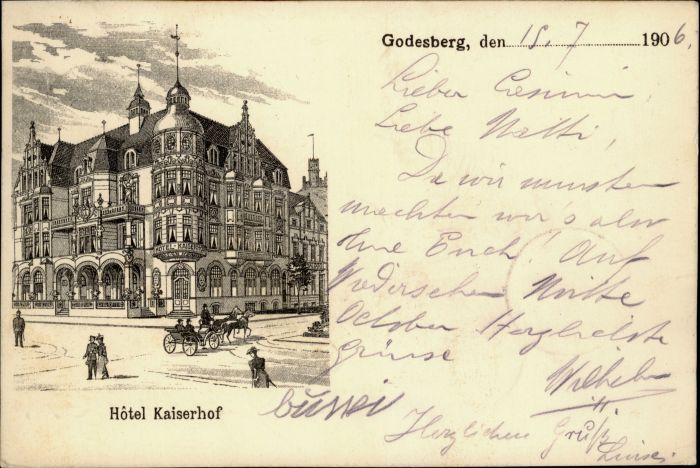 Godesberg, den 15. 7 1906.
Lieber Casimir,
Liebe Matti,
Da wir mussten
machten wir's also
ohne Euch! Auf
Wiedersehen Mitte
October Herzlichste
Grüsse
Wilhelm
Hôtel Kaiserhof
Herzlichen Gruß